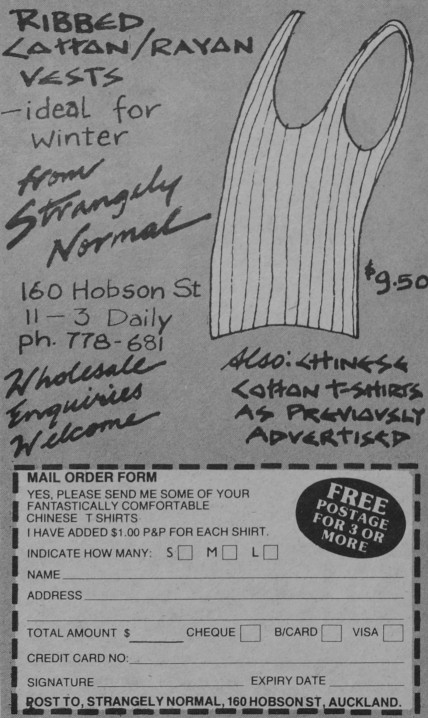 RIBBED
COTTON/RAYON
VESTS
-ideal for
winter
from
Strangely
Normal
$9.50
160 Hobson St
11-3 Daily
ph. 778-681
Wholesale
Enquiries
Welcome
Also: CHINESE
COTTON T-SHIRTS
AS PREVIOUSLY
ADVERTISED
MAIL ORDER FORM
YES, PLEASE SEND ME SOME OF YOUR
FANTASTICALLY COMFORTABLE
CHINESE T SHIRTS
I HAVE ADDED $1.00 P&P FOR EACH SHIRT.
FREE
POSTAGE
FOR 3 OR
MORE
INDICATE HOW MANY: S M L
NAME
ADDRESS
TOTAL AMOUNT $ CHEQUE B/CARD VISA
CREDIT CARD NO:
SIGNATURE EXPIRY DATE
POST TO, STRANGELY NORMAL, 160 HOBSON ST, AUCKLAND.